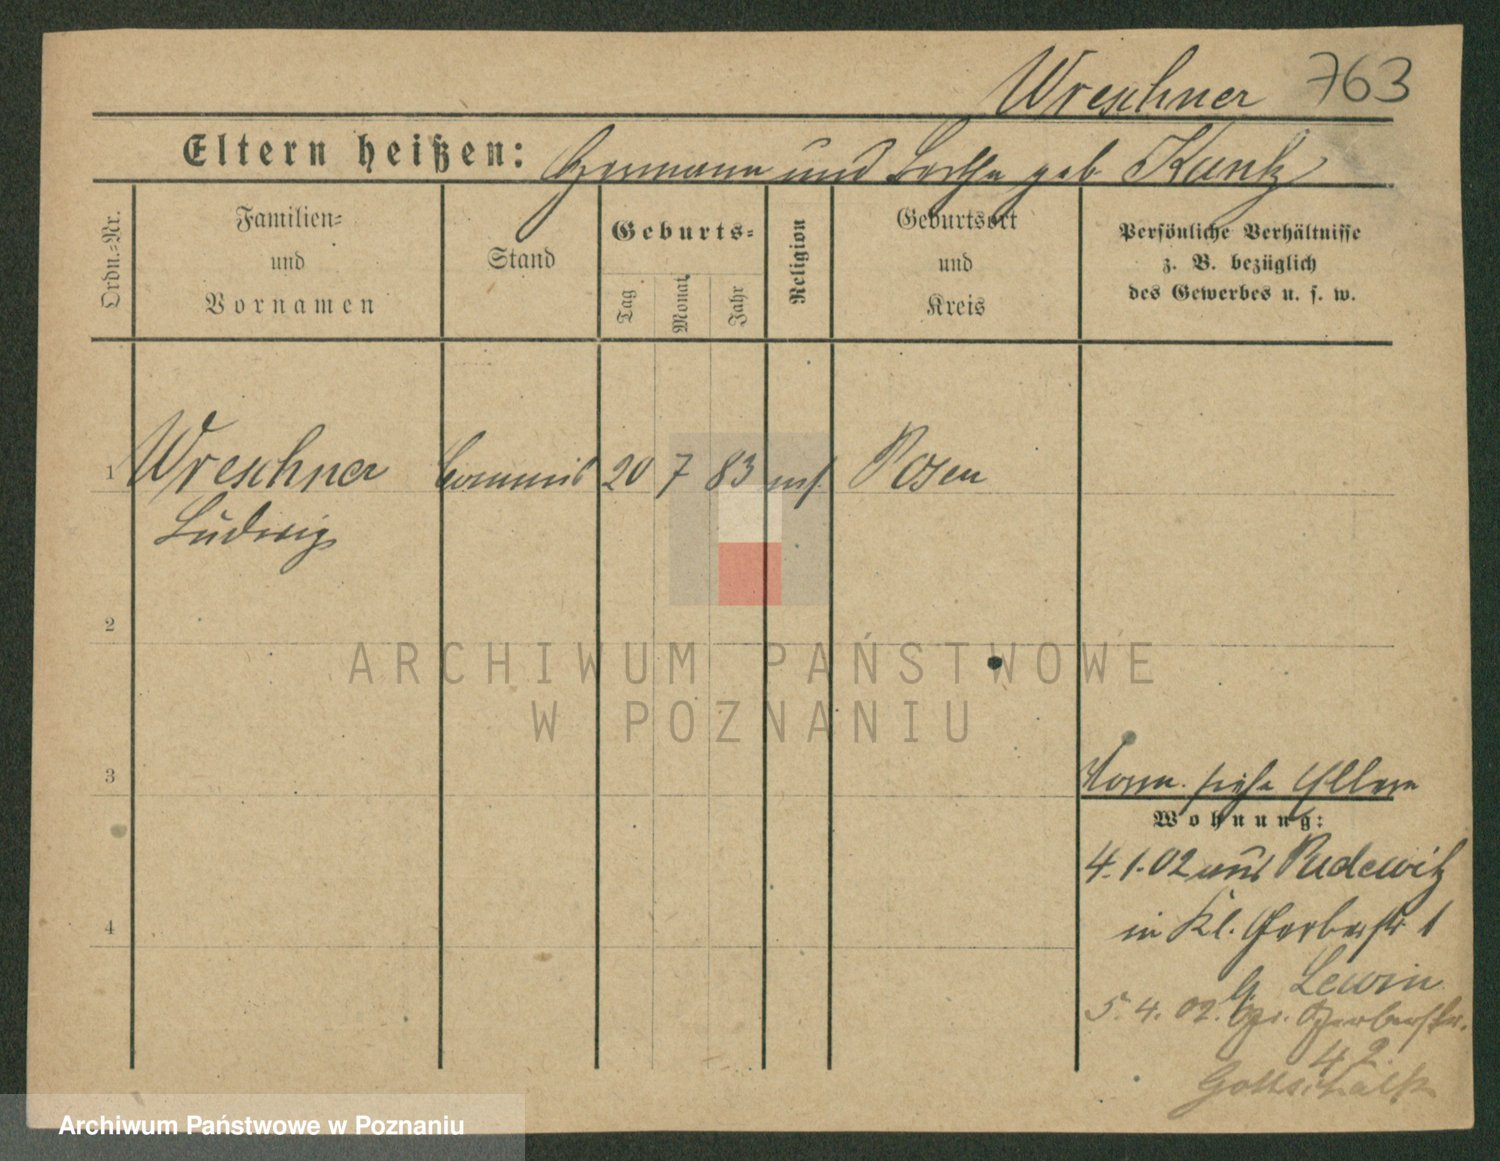 Wreschner 763
Eltern heißen: Hermann und Dorthe geb. Kantz
Ordn.-Nr.
Familien-
und
Vornamen
Stand
Geburts-
Tag
Monat
Jahr
Religion
Geburtsort
und
Kreis
Persönliche Verhältnisse
z. B. bezüglich
des Gewerbes u. s. w.
1 Wreschner Commis 20 7 83 mos. Posen
Ludwig
2
ARCHIWUM PAŃSTWOWE
W POZNANIU
3
siehe Eltern
Wohnung:
4.1.02 aus Pudewitz
in Kl. Gerberstr 1
4
Lewin
5.4.02. Gr. Gerberstr.
42
Gottschalk
Archiwum Państwowe w Poznaniu